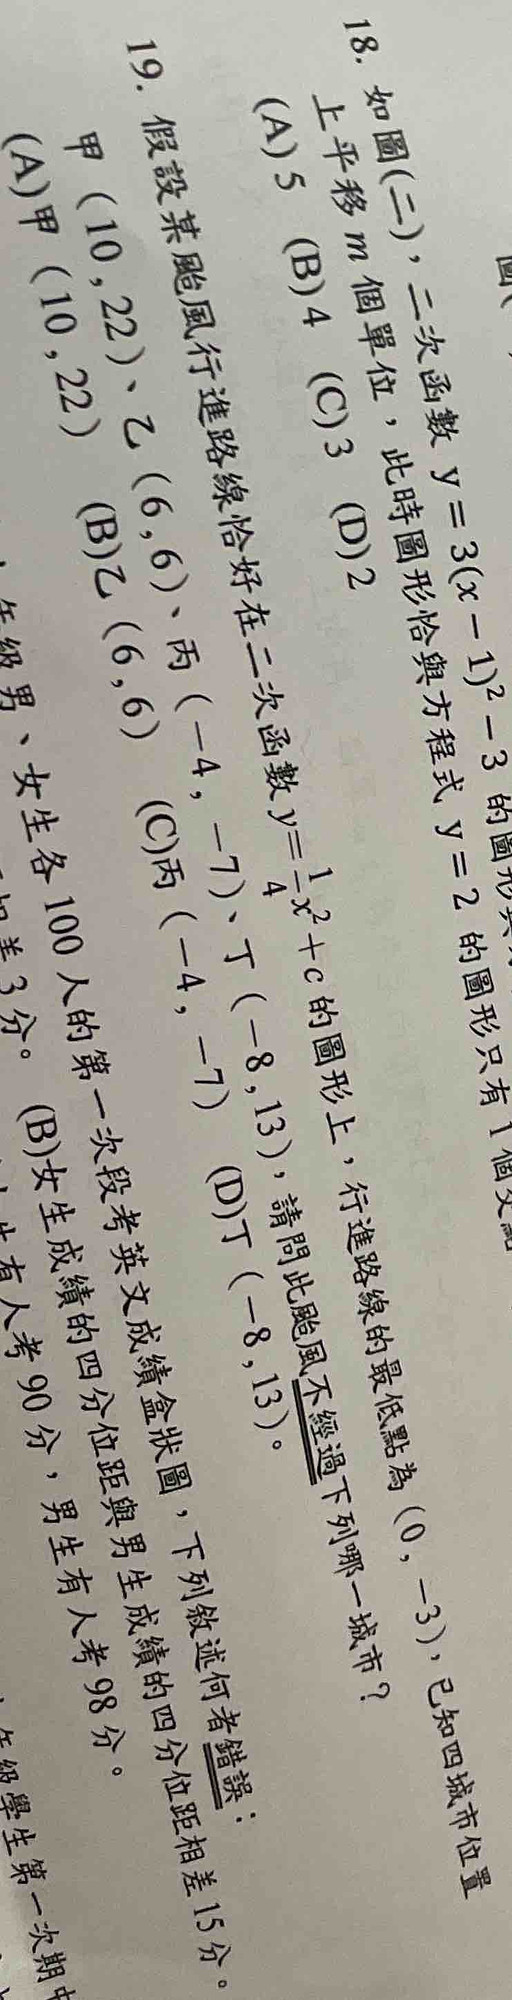 18. 如圖(二)，二次函數 y＝3(x－1)²－3 的圖形
上平移 m 個單位，此時圖形恰與方程式 y＝2 的圖形只有 1 個交點
(A) 5 (B) 4 (C) 3 (D) 2
19. 假設某颱風行進路線恰好在二次函數 y＝1/4x²＋c 的圖形上，行進路線的最低點為（0，－3），已知四城市位置
甲（10，22）、乙（6，6）、丙（－4，－7）、丁（－8，13），請問此颱風不經過下列哪一城市？
(A)甲（10，22） (B)乙（6，6） (C)丙（－4，－7） (D)丁（－8，13）。
年級男、女生各 100 人的第一次段考英文成績盒狀圖，下列敘述何者錯誤：
相差 3 分。 (B)女生成績的四分位距與男生成績的四分位距相差 15 分。
有人考 90 分，男生有人考 98 分。
年級學生第一次期